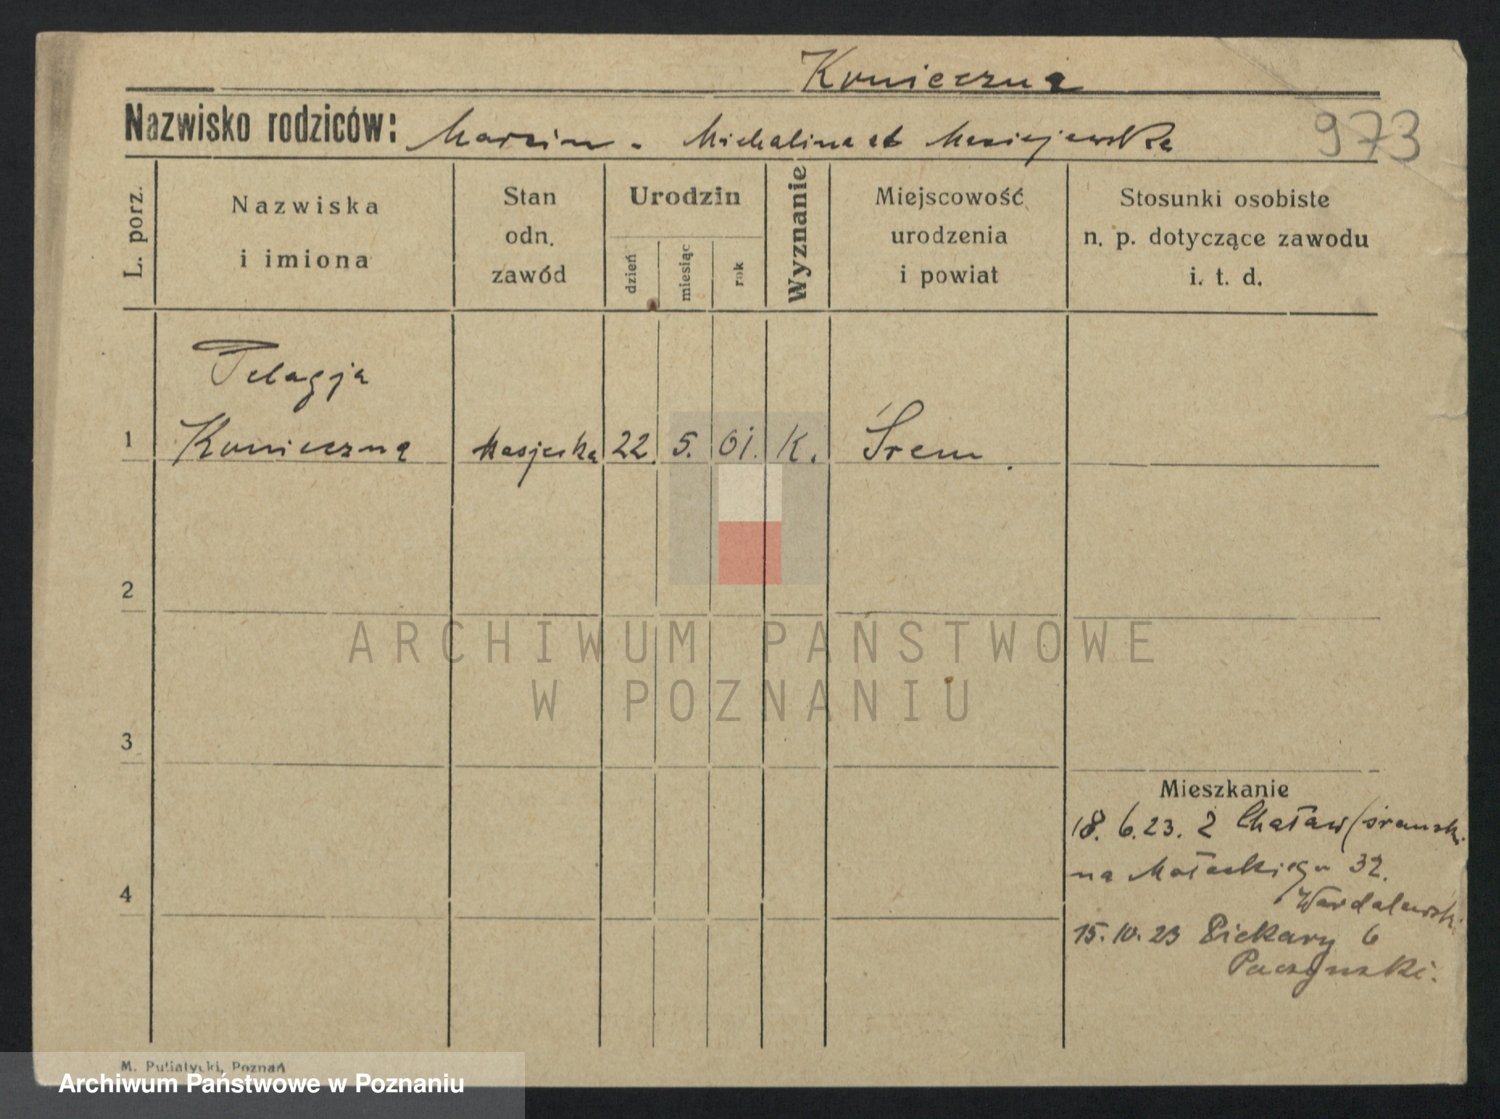 Konieczna
Nazwisko rodziców: Marcin - Michalina Maciejewska
973
L. porz.
Nazwiska
i imiona
Stan
odn.
zawód
Urodzin
dzień
miesiąc
rok
Wyznanie
Miejscowość
urodzenia
i powiat
Stosunki osobiste
n. p. dotyczące zawodu
i. t. d.
Pelagja
1 Konieczna 22. 5. 01. K. Śrem.
2
ARCHIWUM PAŃSTWOWE
W POZNANIU
3
Mieszkanie
18. 6. 23. z Chaław (śremsk.
na Małeckiego 32.
4
15. 10. 23 Piekary 6
Paczyński.
M. Putiatycki, Poznań
Archiwum Państwowe w Poznaniu